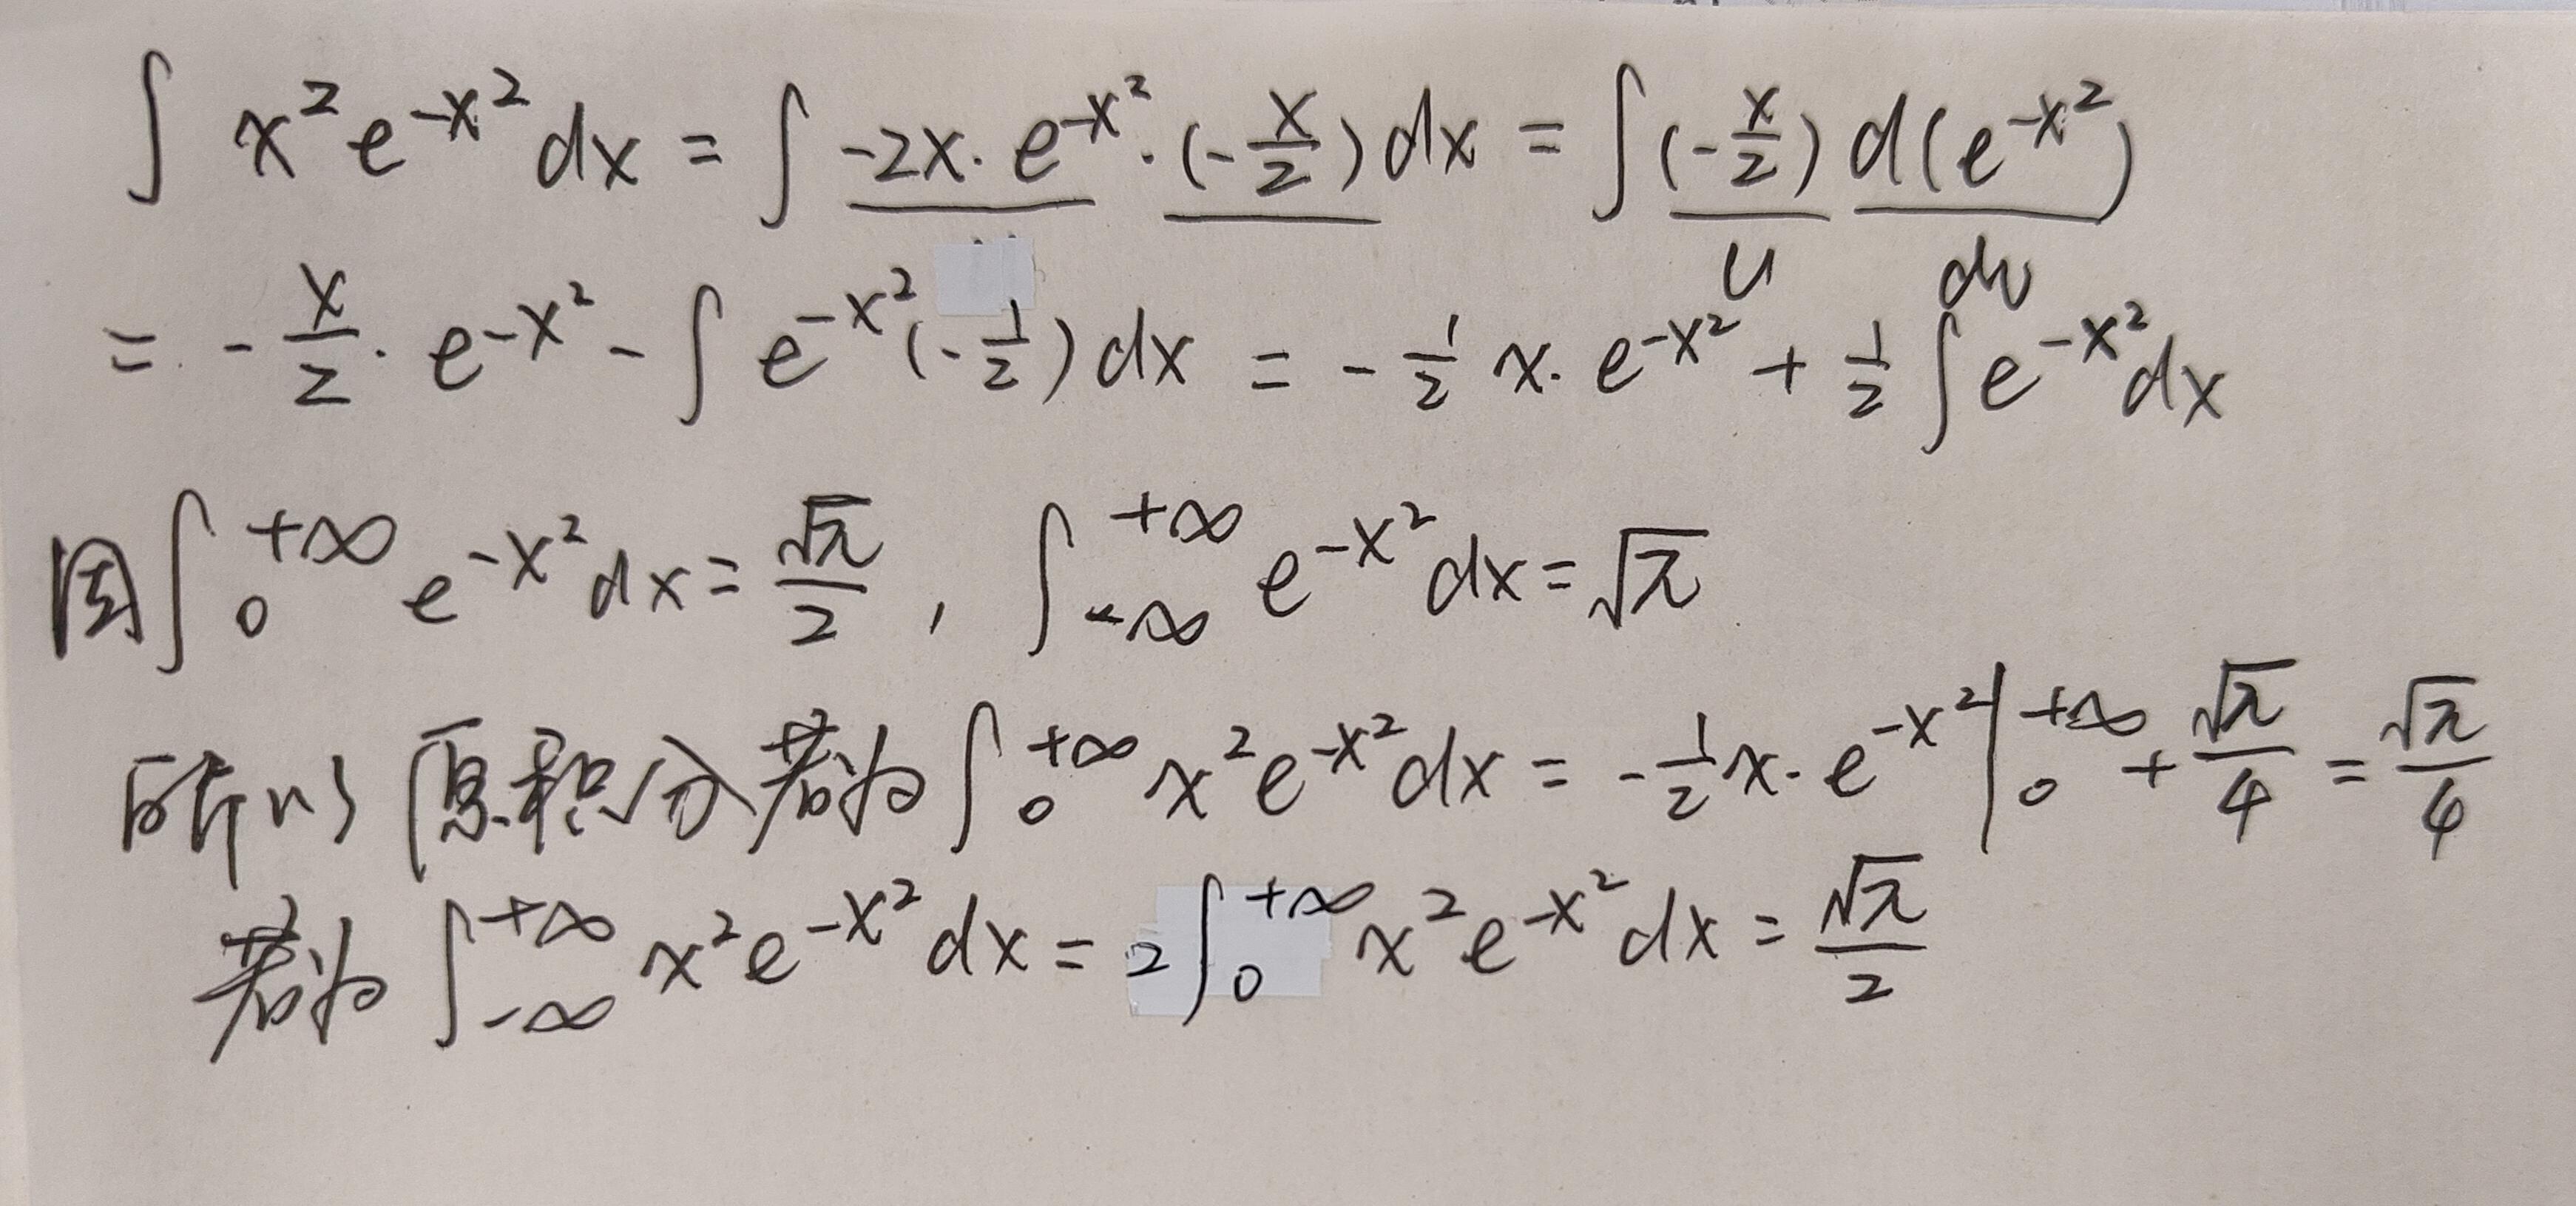 ∫ x²e^{-x²}dx = ∫ -2x·e^{-x²}·(-x/2)dx = ∫(-x/2)d(e^{-x²})
u dv
= -x/2·e^{-x²} - ∫e^{-x²}(-1/2)dx = -1/2 x·e^{-x²} + 1/2∫e^{-x²}dx
因∫_0^{+∞} e^{-x²}dx = √π/2 , ∫_{-∞}^{+∞} e^{-x²}dx = √π
所以原积分若为∫_0^{+∞} x²e^{-x²}dx = -1/2 x·e^{-x²}|_0^{+∞} + √π/4 = √π/4
若为∫_{-∞}^{+∞} x²e^{-x²}dx = 2∫_0^{+∞} x²e^{-x²}dx = √π/2